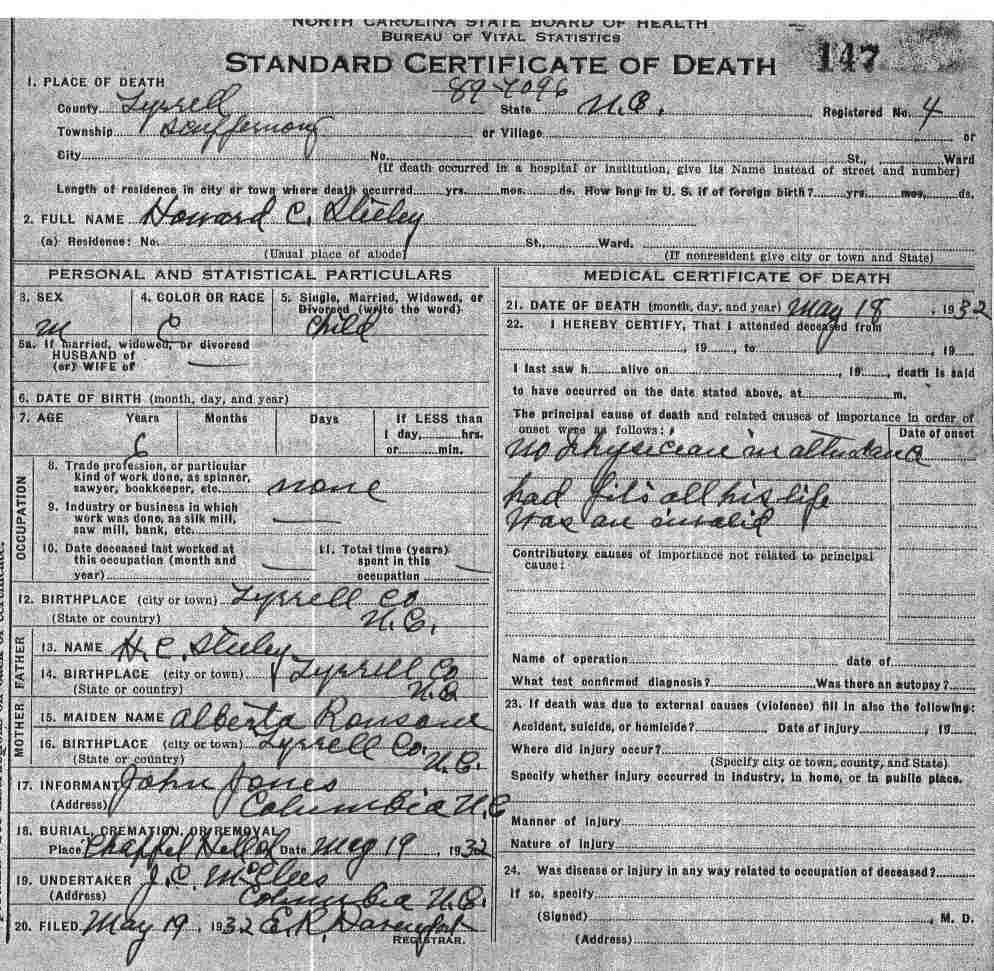 NORTH CAROLINA STATE BOARD OF HEALTH
BUREAU OF VITAL STATISTICS
STANDARD CERTIFICATE OF DEATH 147
1. PLACE OF DEATH 89-7096
County Tyrrell State N.C. Registered No. 4
Township Scuffernong or Village or
City No. St., Ward
(If death occurred in a hospital or institution, give its Name instead of street and number)
Length of residence in city or town where death occurred yrs. mos. ds. How long in U. S. if of foreign birth? yrs. mos. ds.
2. FULL NAME Howard C. Sliely
(a) Residence: No. St., Ward.
(Usual place of abode) (If nonresident give city or town and State)
PERSONAL AND STATISTICAL PARTICULARS
3. SEX 4. COLOR OR RACE 5. Single, Married, Widowed, or
Divorced (write the word)
M C Child
5a. If married, widowed, or divorced
HUSBAND of
(or) WIFE of
6. DATE OF BIRTH (month, day, and year)
7. AGE Years Months Days If LESS than
1 day, hrs.
6 or min.
OCCUPATION
8. Trade profession, or particular
kind of work done, as spinner,
sawyer, bookkeeper, etc. none
9. Industry or business in which
work was done, as silk mill,
saw mill, bank, etc.
10. Date deceased last worked at
this occupation (month and
year)
11. Total time (years)
spent in this
occupation
12. BIRTHPLACE (city or town) Tyrrell Co
(State or country) N.C.
FATHER
13. NAME H. C. Sliely
14. BIRTHPLACE (city or town) Tyrrell Co
(State or country) N.C
MOTHER
15. MAIDEN NAME Alberta Ronsone
16. BIRTHPLACE (city or town) Tyrrell Co.
(State or country) N.C.
17. INFORMANT John Jones
(Address) Columbia N.C
18. BURIAL, CREMATION, OR REMOVAL
Place Chappel Hill Date May 19, 1932
19. UNDERTAKER J. C. McClees
(Address) Columbia N.C.
20. FILED May 19, 1932 E. R. Davenport
REGISTRAR.
MEDICAL CERTIFICATE OF DEATH
21. DATE OF DEATH (month, day, and year) May 18, 1932
22. I HEREBY CERTIFY, That I attended deceased from
, 19 , to , 19
I last saw h alive on , 19 , death is said
to have occurred on the date stated above, at m.
The principal cause of death and related causes of importance in order of
onset were as follows: Date of onset
no physician in attendance
had fits all his life
was an invalid
Contributory causes of importance not related to principal
cause:
Name of operation date of
What test confirmed diagnosis? Was there an autopsy?
23. If death was due to external causes (violence) fill in also the following:
Accident, suicide, or homicide? Date of injury , 19
Where did injury occur?
(Specify city or town, county, and State)
Specify whether injury occurred in industry, in home, or in public place.
Manner of Injury
Nature of Injury
24. Was disease or injury in any way related to occupation of deceased?
If so, specify
(Signed) , M. D.
(Address)